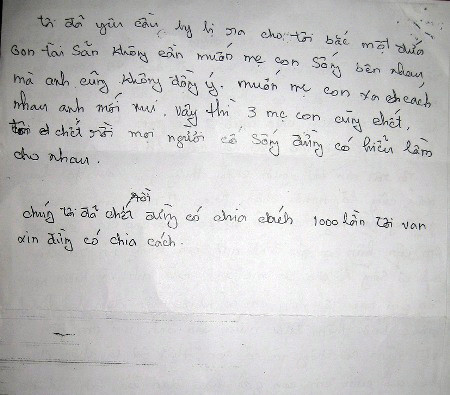 tôi đã yêu cầu ly hị ra cho tôi bắc một đứa
con tài Sản không cần muốn mẹ con Sống bên nhau
mà anh cũng không đồng ý. muốn mẹ con xa cách
nhau anh mới vui. vậy thì 3 mẹ con cùng chết.
chết rồi mọi người cố Sống đừng có hiểu lầm
cho nhau.
chúng tôi đã chết rồi đừng có chia cách 1000 lần tôi van
xin đừng có chia cách.